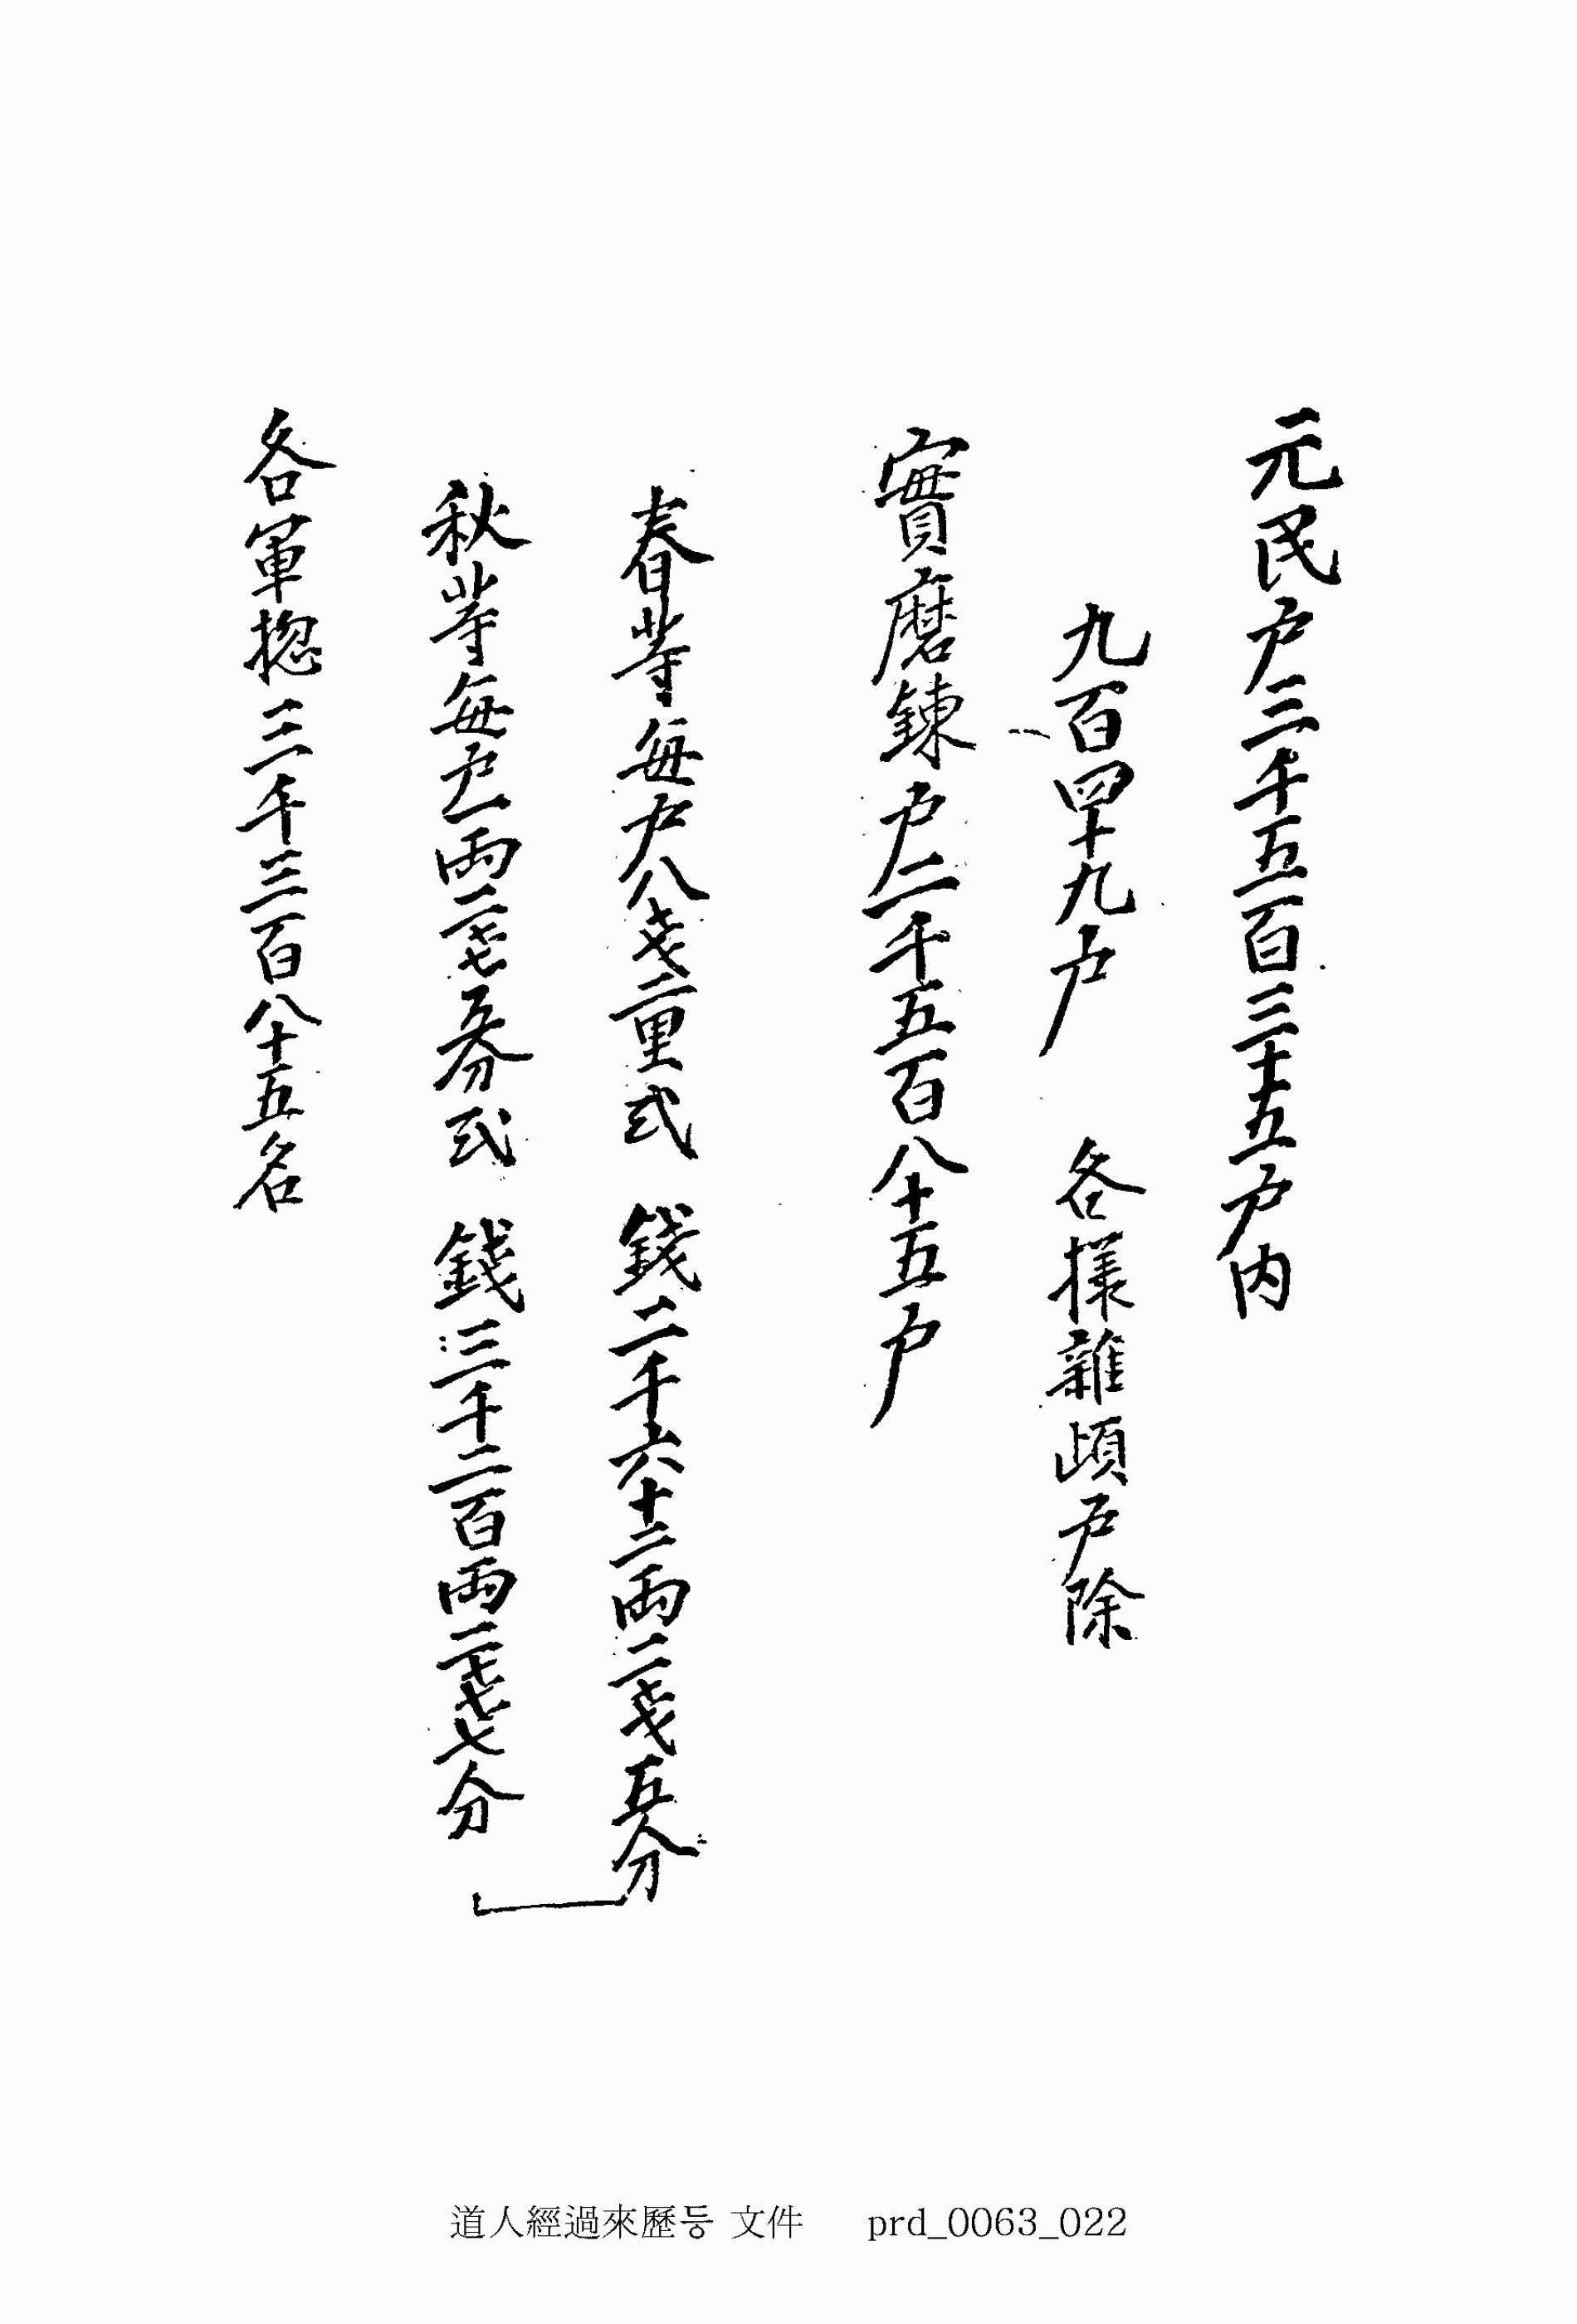 元民户三千五百三十五户内
九百四十九户 各樣雜頉户除
實磨鍊户二千五百八十五户
春等每户八戋二里式 錢二千六十二両二戋五分
秋等每户一両二戋五分式 錢三千二百両二戋七分
各軍摠三千三百八十五名
道人經過來歷등 文件 prd_0063_022